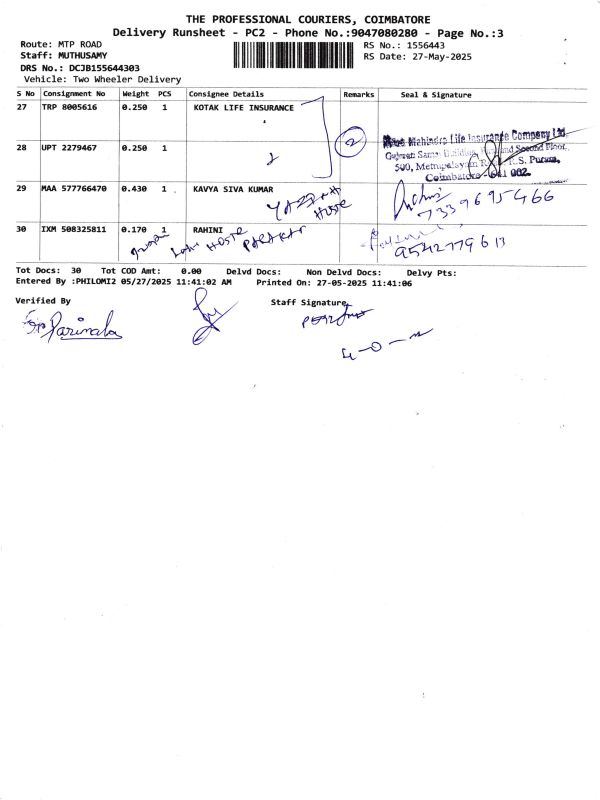 THE PROFESSIONAL COURIERS, COIMBATORE
Delivery Runsheet - PC2 - Phone No.:9047080280 - Page No.:3
Route: MTP ROAD
RS No.: 1556443
Staff: MUTHUSAMY
RS Date: 27-May-2025
DRS No.: DCJB155644303
Vehicle: Two Wheeler Delivery
S No Consignment No Weight PCS Consignee Details Remarks Seal & Signature
27 TRP 8005616 0.250 1 KOTAK LIFE INSURANCE
2
Mahindra Life Insurance Company Ltd.
28 UPT 2279467 0.250 1
and Second Floor,
500, Mettupalayam R.S. Puram,
Coimbatore - 641 002.
29 MAA 577766470 0.430 1 KAVYA SIVA KUMAR
HOSTE
7339695466
30 IXM 508325811 0.170 1 RAHINI
HOSTE
9542779613
Tot Docs: 30 Tot COD Amt: 0.00 Delvd Docs: Non Delvd Docs: Delvy Pts:
Entered By :PHILOMI2 05/27/2025 11:41:02 AM Printed On: 27-05-2025 11:41:06
Verified By
Staff Signature
Parimala